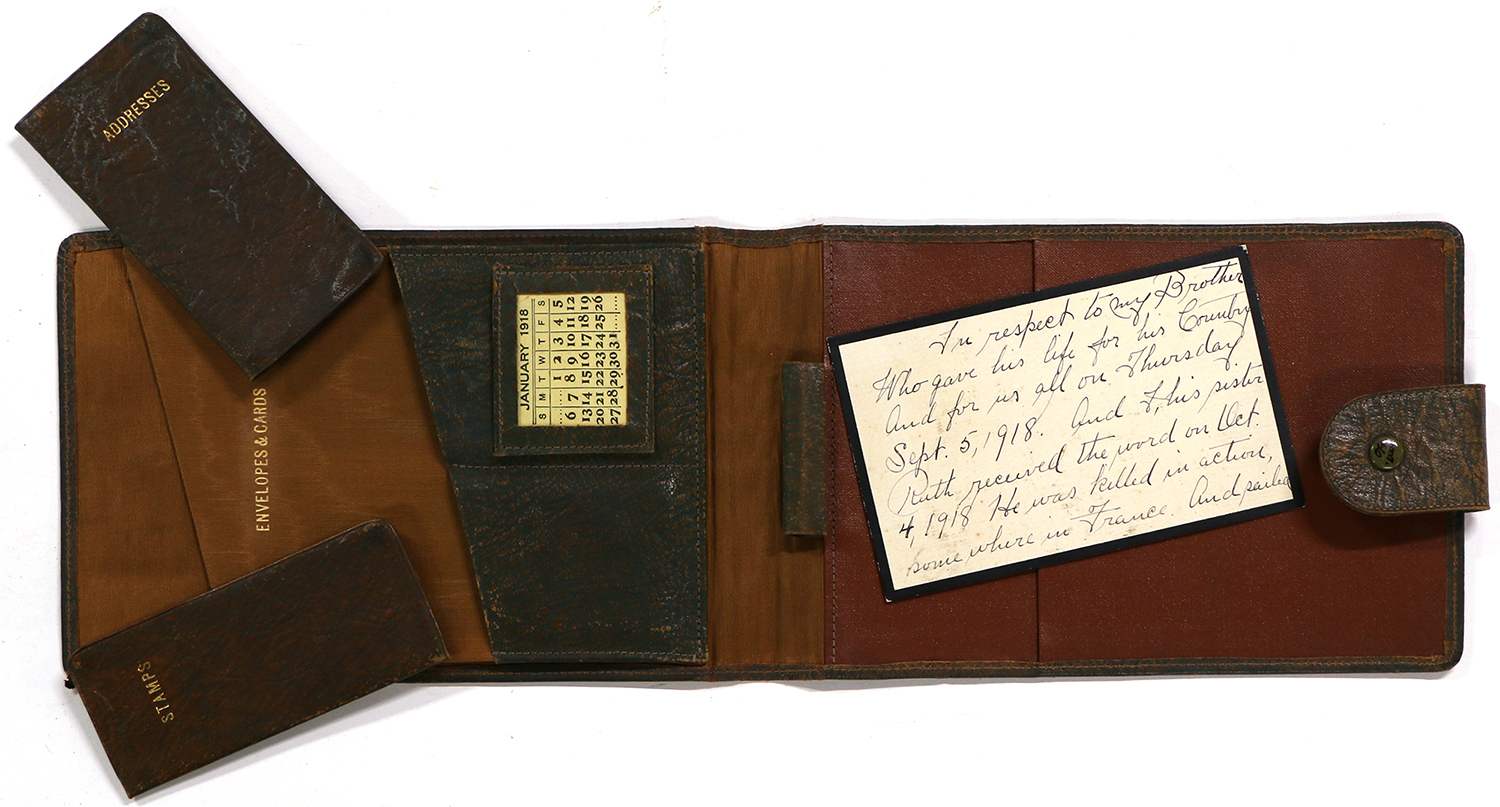 ADDRESSES
ENVELOPES & CARDS
STAMPS
JANUARY 1918
S M T W T F S
.... .... 1 2 3 4 5
6 7 8 9 10 11 12
13 14 15 16 17 18 19
20 21 22 23 24 25 26
27 28 29 30 31 .... ....
In respect to my Brother
Who gave his life for his Country
And for us all on Thursday
Sept. 5, 1918. And I, his sister
Ruth received the word on Oct.
4, 1918 He was killed in action,
some where in France. And sailed